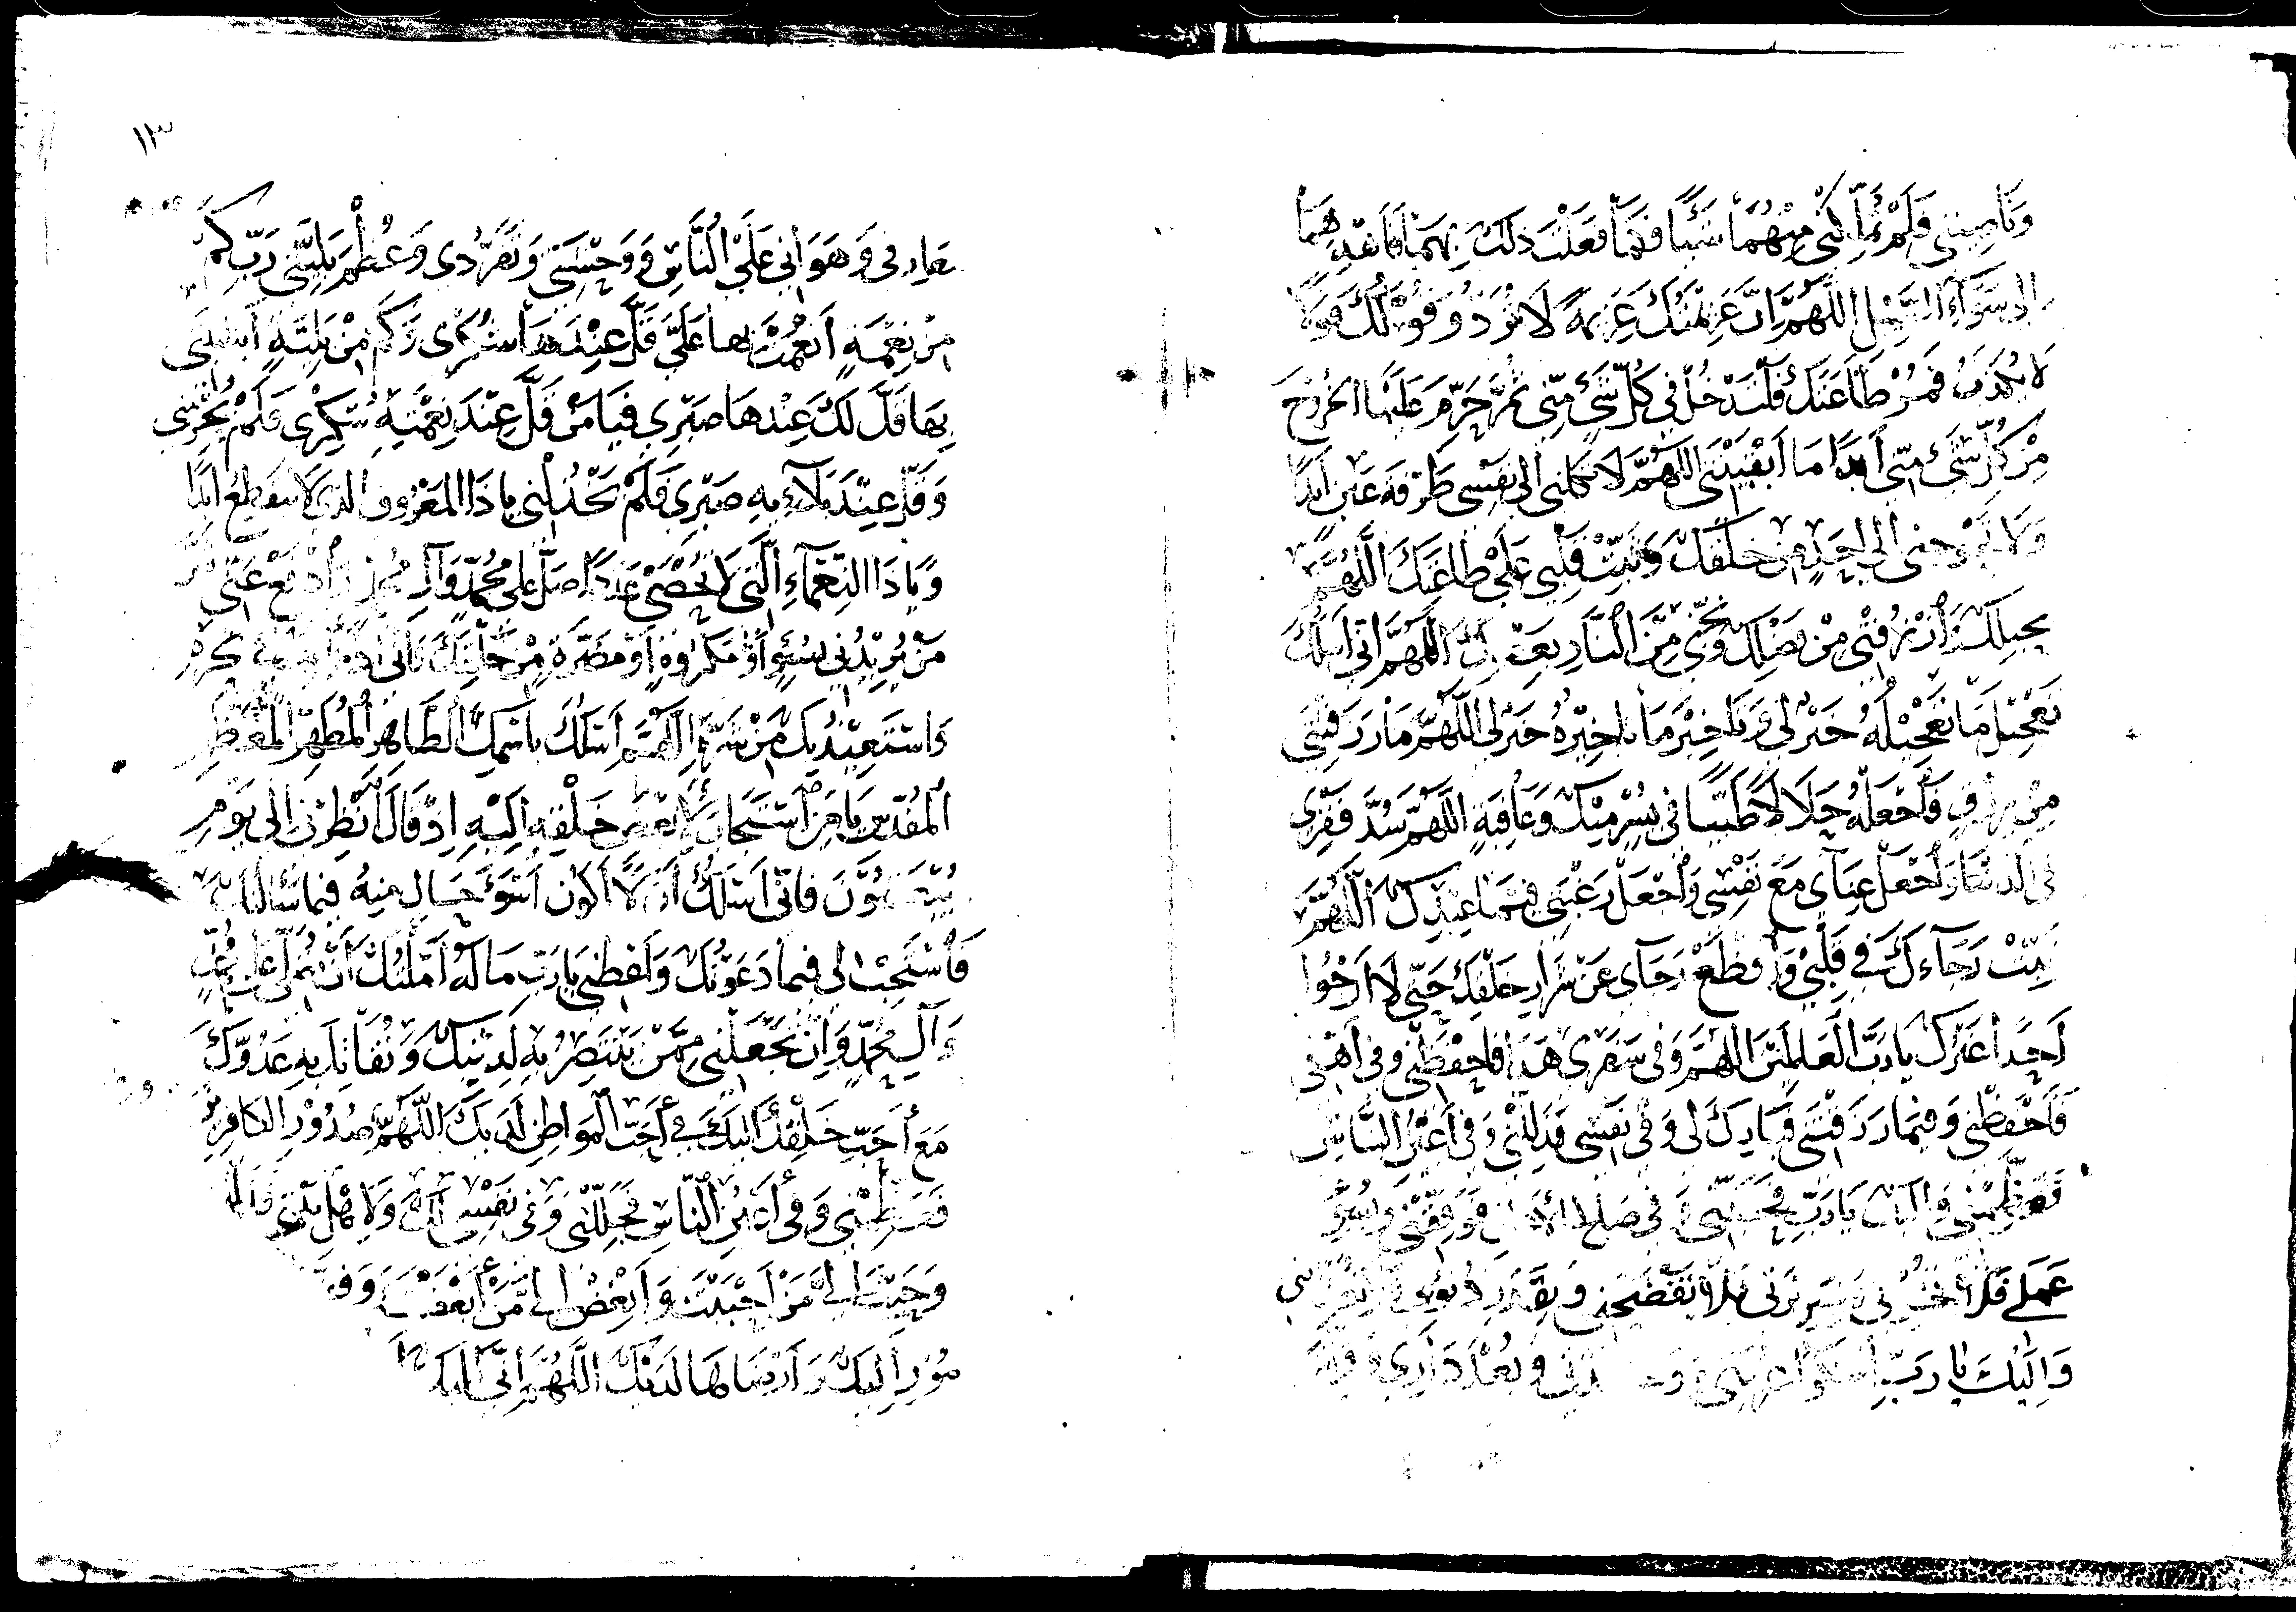 وَنَاصِيَتِي فَلَمْ تُمَلِّكْنِي مِنْهُمَا شَيْئًا فَكَمَا فَعَلْتَ ذَلِكَ بِهِمَا فَاهْدِهِمَا
إِلَى سَوَاءِ السَّبِيلِ اللَّهُمَّ إِنَّ عَزِيمَتَكَ عَزِيمَةٌ لَا تُرَدُّ وَقَوْلَكَ قَوْلٌ
لَا يُكَذَّبُ فَمُرْ طَاعَتَكَ فَلْتَدْخُلْ فِي كُلِّ شَيْءٍ مِنِّي ثُمَّ حَرِّمْ عَلَيْهَا الْخُرُوجَ
مِنْ كُلِّ شَيْءٍ مِنِّي أَبَدًا مَا أَبْقَيْتَنِي اللَّهُمَّ لَا تَكِلْنِي إِلَى نَفْسِي طَرْفَةَ عَيْنٍ أَبَدًا
وَلَا تُحْوِجْنِي إِلَى أَحَدٍ مِنْ خَلْقِكَ وَثَبِّتْ قَلْبِي عَلَى طَاعَتِكَ اللَّهُمَّ
وَارْزُقْنِي مِنْ فَضْلِكَ وَنَجِّنِي مِنَ النَّارِ اللَّهُمَّ إِنِّي أَسْئَلُكَ
تَعْجِيلَ مَا تَعْجِيلُهُ خَيْرٌ لِي وَتَأْخِيرَ مَا تَأْخِيرُهُ خَيْرٌ لِي اللَّهُمَّ مَا رَزَقْتَنِي
مِنْ رِزْقٍ فَاجْعَلْهُ حَلَالًا طَيِّبًا فِي يُسْرٍ مِنْكَ وَعَافِيَةٍ اللَّهُمَّ سُدَّ فَقْرِي
فِي الدُّنْيَا وَاجْعَلْ غِنَايَ مَعَ نَفْسِي وَاجْعَلْ رَغْبَتِي فِيمَا عِنْدَكَ اللَّهُمَّ
ثَبِّتْ رَجَاءَكَ فِي قَلْبِي وَاقْطَعْ رَجَايَ عَنْ شِرَارِ خَلْقِكَ حَتَّى لَا أَرْجُوا
أَحَدًا غَيْرَكَ يَا رَبَّ الْعَالَمِينَ اللَّهُمَّ وَفِي سَفَرِي هَذَا فَاحْفَظْنِي وَفِي أَهْلِي
فَاحْفَظْنِي وَفِيمَا رَزَقْتَنِي فَبَارِكْ لِي وَفِي نَفْسِي فَذَلِّلْنِي وَفِي أَعْيُنِ النَّاسِ
فَعَظِّمْنِي وَإِلَيْكَ يَا رَبِّ فَحَبِّبْنِي وَفِي صَالِحِ الْأَعْمَالِ فَوَفِّقْنِي وَبِسُوءِ
عَمَلِي فَلَا تُخْزِنِي وَبِسَرِيرَتِي فَلَا تَفْضَحْنِي وَبِقَدْرِ ذُنُوبِي
وَإِلَيْكَ يَا رَبِّ أَشْكُو غُرْبَتِي وَبُعْدَ دَارِي وَقِلَّةَ
١٣
مَعَارِفِي وَهَوَانِي عَلَى النَّاسِ وَوَحْشَتِي وَتَفَرُّدِي وَعُظْمَ بَلِيَّتِي رَبِّ كَمْ
مِنْ نِعْمَةٍ أَنْعَمْتَ بِهَا عَلَيَّ قَلَّ عِنْدَهَا شُكْرِي وَكَمْ مِنْ بَلِيَّةٍ ابْتَلَيْتَنِي
بِهَا قَلَّ لَكَ عِنْدَهَا صَبْرِي فَيَا مَنْ قَلَّ عِنْدَ نِعْمَتِهِ شُكْرِي فَلَمْ يَحْرِمْنِي
وَقَلَّ عِنْدَ بَلَائِهِ صَبْرِي فَلَمْ يَخْذُلْنِي يَا ذَا الْمَعْرُوفِ الَّذِي لَا يَنْقَطِعُ أَبَدًا
وَيَا ذَا النَّعْمَاءِ الَّتِي لَا تُحْصَى عَدَدًا صَلِّ عَلَى مُحَمَّدٍ وَآلِ مُحَمَّدٍ وَادْفَعْ عَنِّي شَرَّ
مَنْ يُرِيدُنِي بِسُوءٍ أَوْ مَكْرُوهٍ أَوْ مَضَرَّةٍ مِنْ خَلْقِكَ فَإِنِّي أَدْرَأُ بِكَ فِي نَحْرِهِ
وَأَسْتَعِيذُ بِكَ مِنْ شَرِّهِ اللَّهُمَّ أَسْئَلُكَ بِاسْمِكَ الطَّاهِرِ الْمُطَهَّرِ
الْمُقَدَّسِ يَا مَنِ اسْتَجَابَ لِأَبْغَضِ خَلْقِهِ إِلَيْهِ إِذْ قَالَ أَنْظِرْنِي إِلَى يَوْمِ
يُبْعَثُونَ فَإِنِّي أَسْئَلُكَ أَنْ لَا أَكُونَ أَسْوَءَ حَالٍ مِنْهُ فِيمَا سَأَلْتُكَ
فَاسْتَجِبْ لِي فِيمَا دَعَوْتُكَ وَأَعْطِنِي يَا رَبِّ مَا لَهُ أَمَّلْتُكَ أَنْ تُصَلِّيَ عَلَى مُحَمَّدٍ
وَآلِ مُحَمَّدٍ وَأَنْ تَجْعَلَنِي مِمَّنْ تَنْتَصِرُ بِهِ لِدِينِكَ وَتُقَاتِلُ بِهِ عَدُوَّكَ
مَعَ أَحَبِّ خَلْقِكَ إِلَيْكَ فِي أَحَبِّ الْمَوَاطِنِ لَدَيْكَ اللَّهُمَّ صُدُورَ الْكَافِرِينَ
فَعَظِّمْنِي وَفِي أَعْيُنِ النَّاسِ فَجَلِّلْنِي وَفِي نَفْسِي
وَحَبِّبْ إِلَيَّ مَنْ أَحْبَبْتَ وَأَبْغِضْ إِلَيَّ مَنْ أَبْغَضْتَ
إِلَيْكَ وَأَرْضَاهَا لَدَيْكَ اللَّهُمَّ إِنِّي